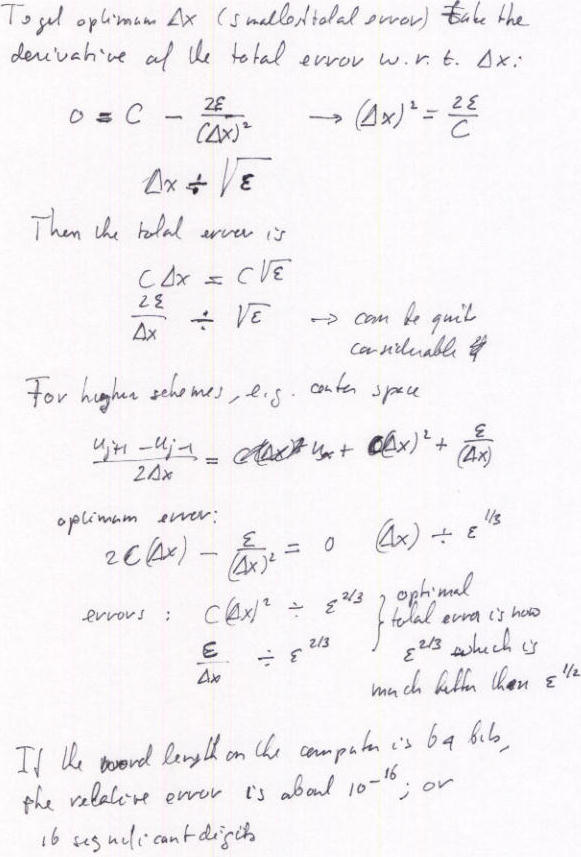 To get optimum Δx (smallest total error) take the
derivative of the total error w.r.t. Δx:
0 = C - 2ε/(Δx)² → (Δx)² = 2ε/C
Δx ÷ √ε
Then the total error is
CΔx = C√ε
2ε/Δx ÷ √ε → can be quite
considerable
For higher schemes, e.g. center space
(u_{j+1} - u_{j-1})/2Δx = u_x + C(Δx)² + ε/(Δx)
optimum error:
2C(Δx) - ε/(Δx)² = 0 (Δx) ÷ ε^{1/3}
errors : C(Δx)² ÷ ε^{2/3} } optimal
total error is now
ε/Δx ÷ ε^{2/3} ε^{2/3} which is
much better than ε^{1/2}
If the word length on the computer is 64 bits,
the relative error is about 10^{-16}; or
16 significant digits